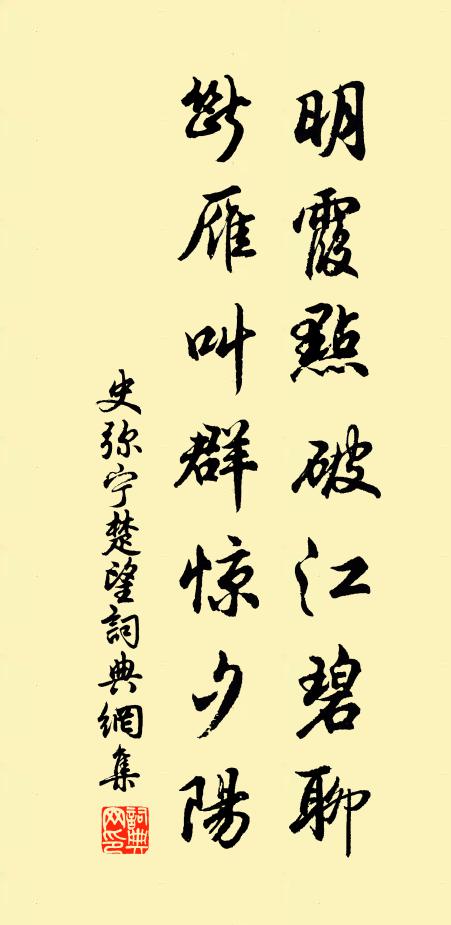 明霞點破江碧聊
断雁叫群惊夕陽
史弥宁楚望詞典網集
詞典網印